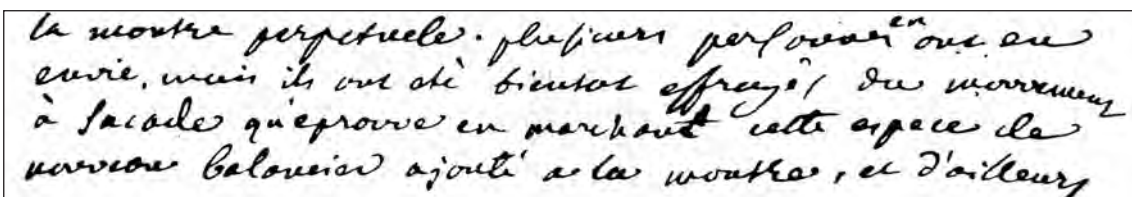 la montre perpetuele. plusieurs personnes en ont eu
envie, mais ils ont été bientot effrayés du mouvement
à sacade qu'éprouve en marchant cette espece de
nouveau balancier ajouté a la montre, et d'ailleurs